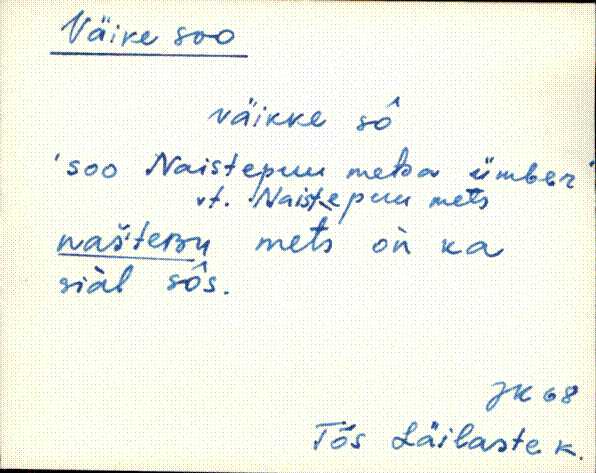 Väike soo
väikke sô
'soo Naistepuu metsa ümber'
vt. Naistepuu mets
naš'teʙu mets òn ka
siàl sôs.
JK 68
Tõs Läilaste k.